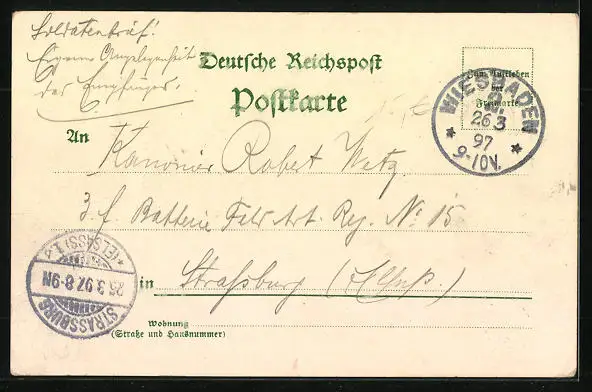 Soldatenbrief!
Eigene Angelegenheit
des Empfängers.
Deutsche Reichspost
Postkarte
Zum Aufkleben
der
Freimarke
WIESBADEN
2.
26 3
97
9-10V.
An
Kanonier Robert Watz
3. f. Batterie Feld Art. Reg. No 15
in Straßburg (Elsaß).
STRASSBURG
26.3.97.8-9N
*(ELSASS) 1.
Wohnung
(Straße und Hausnummer)